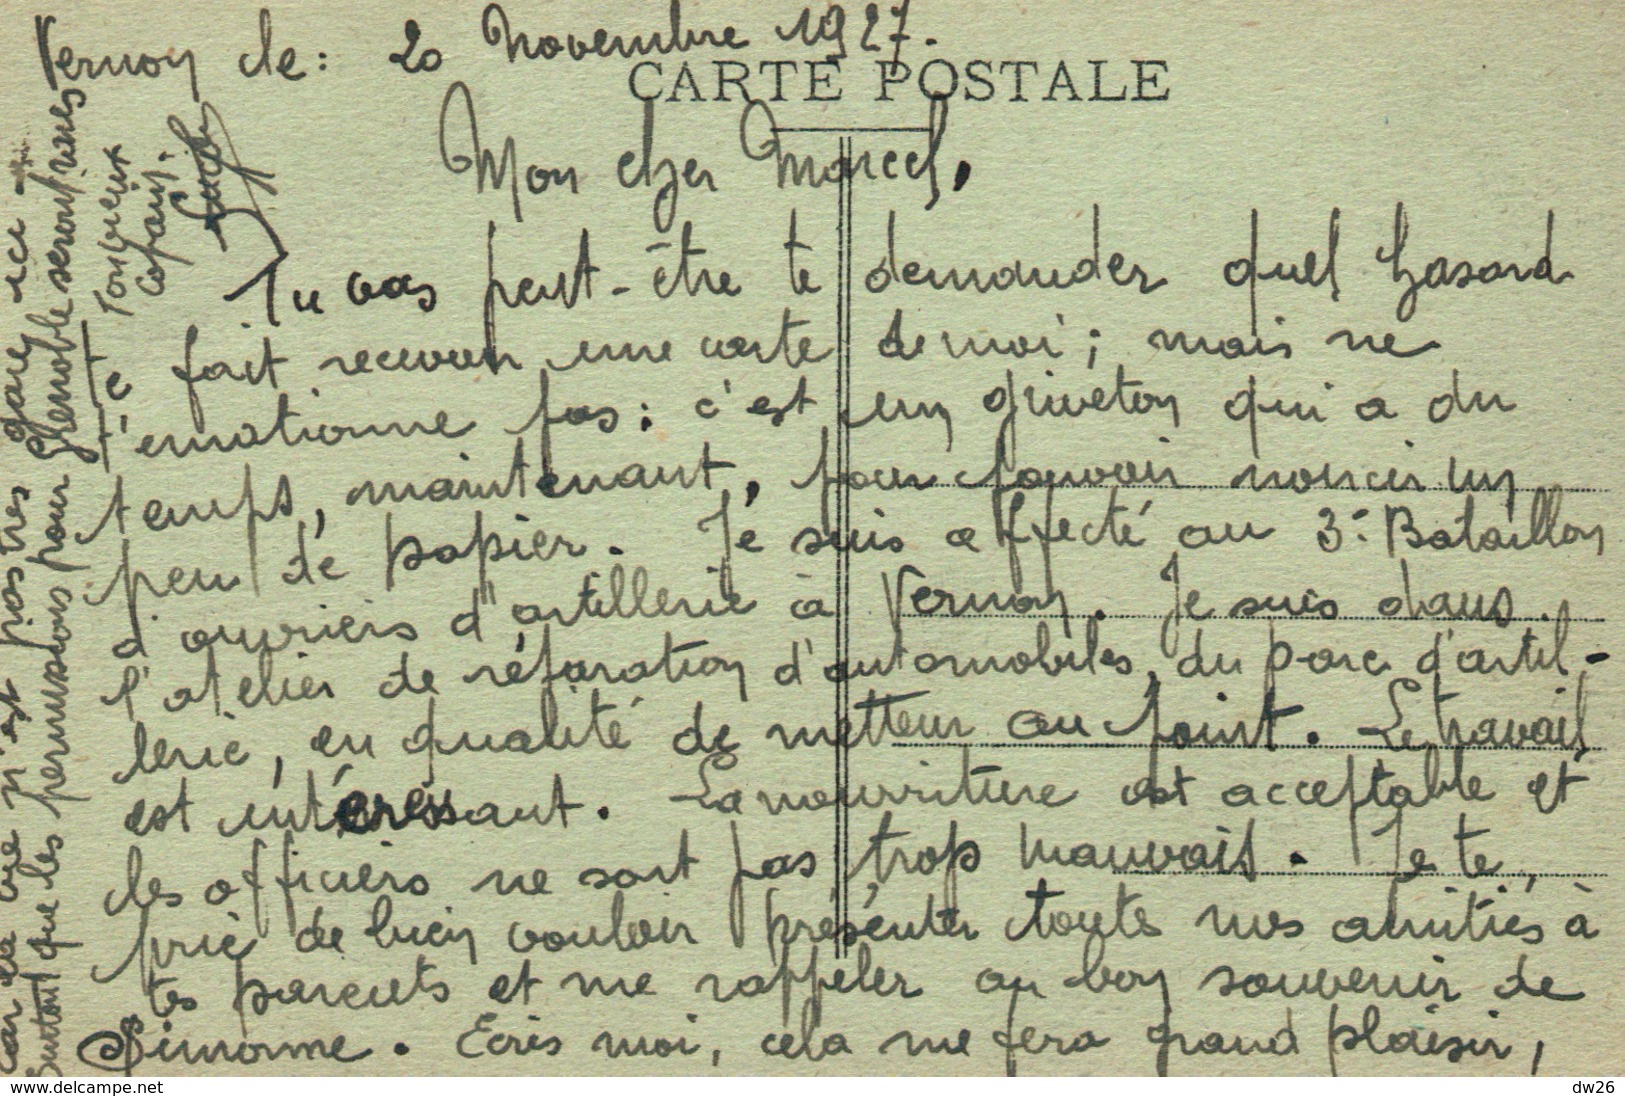 Vernon le : 20 Novembre 1927.
CARTE POSTALE
Mon cher Marcel,
Tu vas peut-être te demander quel hasard
te fait recevoir une carte de moi ; mais ne
t'emotionne pas : c'est un griveton qui a du
temps, maintenant, pour pouvoir noircir un
peu de papier. Je suis affecté au 3e Bataillon
d'ouvriers d'artillerie à Vernon. Je suis dans
l'atelier de réparation d'automobiles, du parc d'artil-
lerie, en qualité de metteur au point. Le travail
est intéressant. La nourriture est acceptable et
les officiers ne sont pas trop mauvais. Je te
prie de bien vouloir présenter toutes mes amitiés à
tes parents et me rappeler au bon souvenir de
Simonne. Ecris moi, cela me fera grand plaisir,
car la vie n'est pas très gaie ici -
surtout que les permissions pour Grenoble seront rares
Ton vieux
copain.
www.delcampe.net
dw26